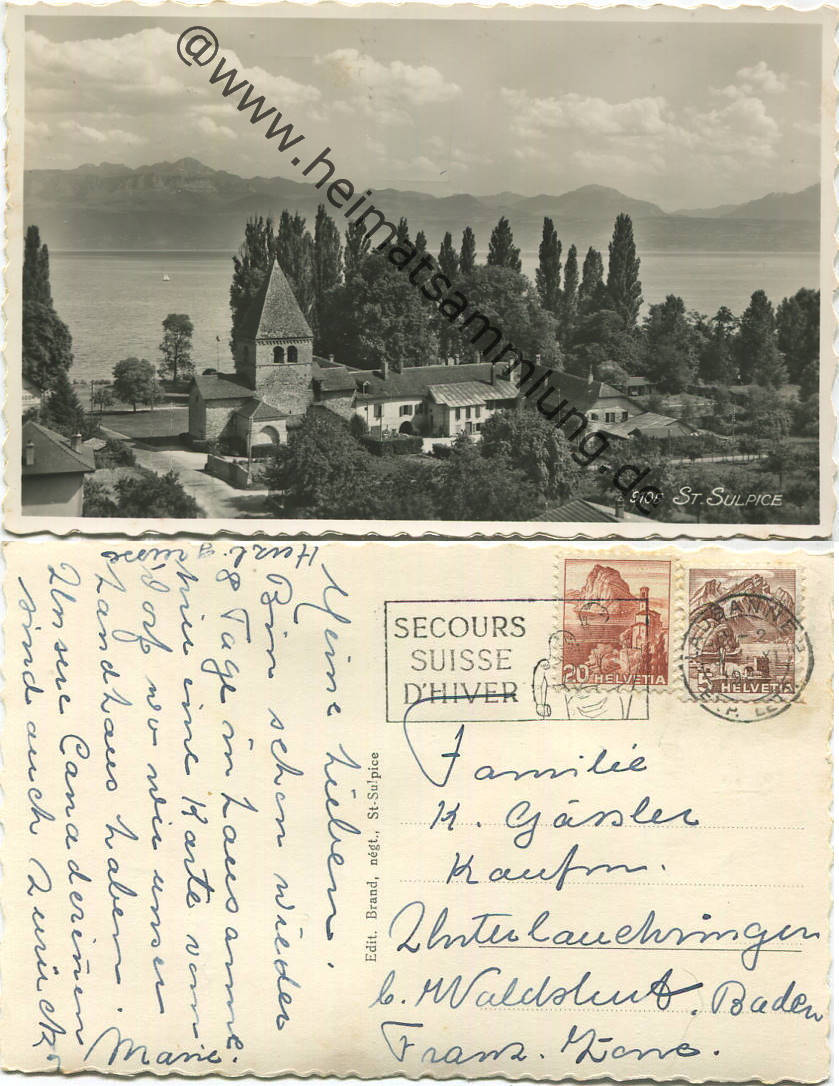 @www.heimatsammlung.de
9106 ST. SULPICE
SECOURS
SUISSE
D'HIVER
20 HELVETIA
HELVETIA
LAUSANNE
Meine Lieben.
Bin schon wieder
8 Tage in Lausanne
hier eine Karte vom
Dorf wo wir unser
Landhaus haben.
Unsere Canaderinnen
sind auch zurück.
Herzl. Grüsse
Marie.
Edit. Brand, négt., St-Sulpice
Familie
K. Gässler
Kaufm.
Unterlauchringen
b. Waldshut. Baden
Franz. Zone.